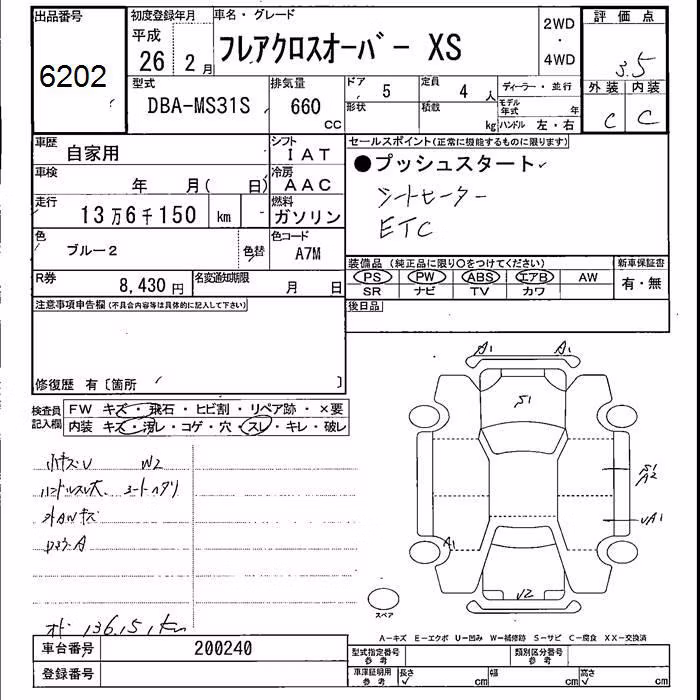 出品番号 初度登録年月 車名・グレード 2WD・4WD 評価点
6202 平成 26年 2月 フレアクロスオーバー XS 3.5
型式 排気量 ドア 5 定員 4人 ディーラー・並行 外装 内装
DBA-MS31S 660cc 形状 積載 kg モデル年式 年 C C
ハンドル 左・右
車歴 自家用 シフト IAT セールスポイント(正常に機能するものに限ります)
車検 年 月( 日) 冷房 AAC ●プッシュスタート
走行 13万6千150 km 燃料 ガソリン シートヒーター
色 ブルー2 色替 色コード A7M ETC
R券 8,430円 名変通知期限 月 日
装備品(純正品に限り○をつけてください) 新車保証書
PS PW ABS エアB AW 有・無
SR ナビ TV カワ
注意事項申告欄(不具合内容等は具体的に記入して下さい) 後日品
修復歴 有〔箇所 〕
検査員記入欄 FW キズ・飛石・ヒビ割・リペア跡・×要
内装 キズ・汚レ・コゲ・穴・スレ・キレ・破レ
小キズU W2
ハンドルスレ大 シートヘタリ
A1 A1
S1
S1
A2
UA1
A1
U2
スペア
136,151km
A−キズ E−エクボ U−凹み W−補修跡 S−サビ C−腐食 XX−交換済
車台番号 200240 型式指定番号 参考 類別区分番号 参考
登録番号 車庫証明用 参考 長さ cm 幅 cm 高さ cm